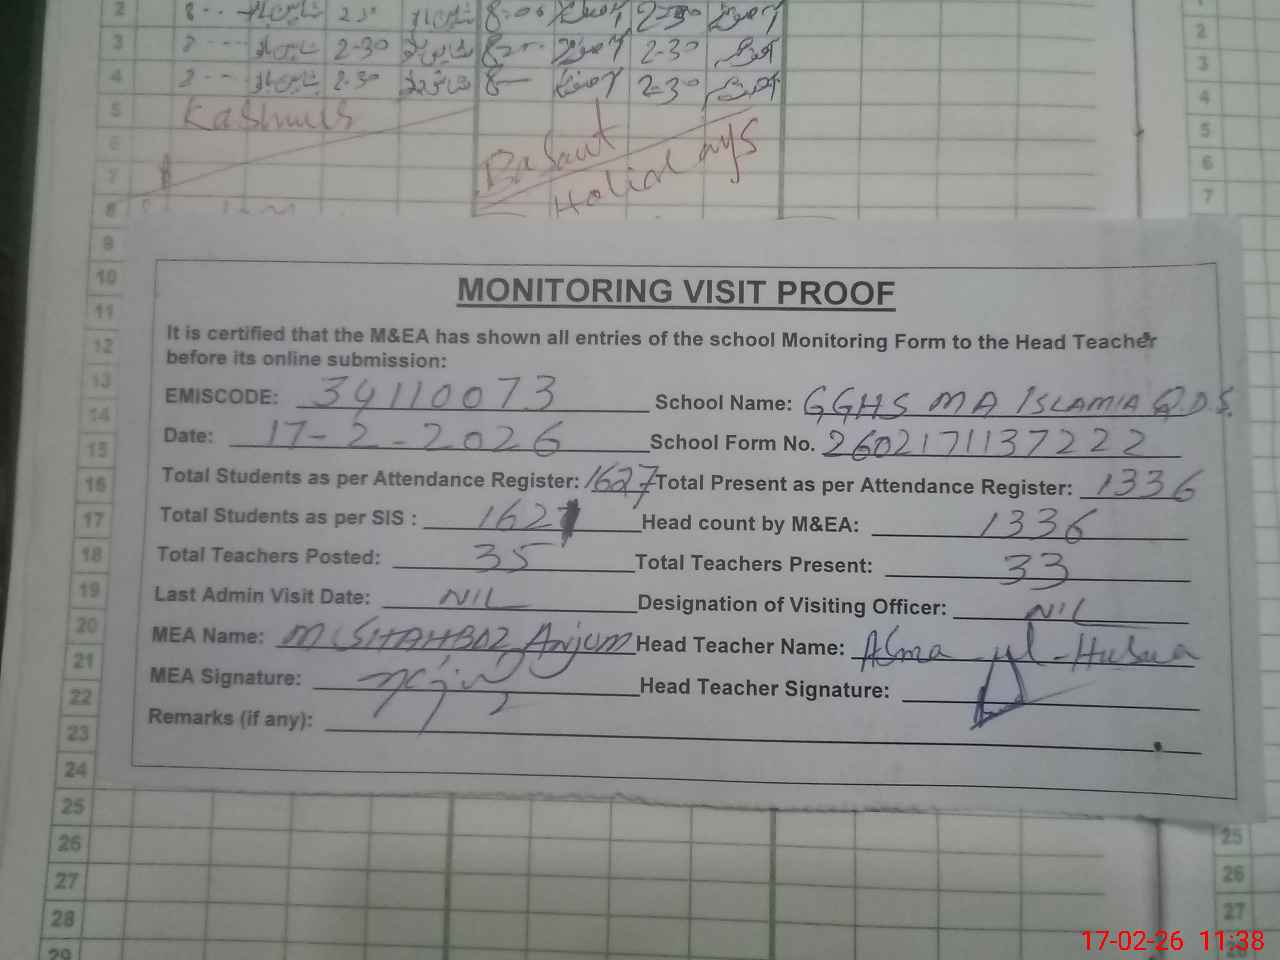 2 8-- 2-30 8:00 2-30
3 8 --- 2-30 8-- 2-30
4 8 --- 2-30 8-- 2-30
5 Kashmir
6 Basant
7 Holidays
8
9
10
11
12
13
14
15
16
17
18
19
20
21
22
23
24
25
26
27
28
29
1
2
3
4
5
6
7
MONITORING VISIT PROOF
It is certified that the M&EA has shown all entries of the school Monitoring Form to the Head Teacher
before its online submission:
EMISCODE: 34110073 School Name: GGHS MA ISLAMIA Q.D.S.
Date: 17-2-2026 School Form No. 2602171137222
Total Students as per Attendance Register: 1627 Total Present as per Attendance Register: 1336
Total Students as per SIS : 1627 Head count by M&EA: 1336
Total Teachers Posted: 35 Total Teachers Present: 33
Last Admin Visit Date: NIL Designation of Visiting Officer: NIL
MEA Name: M SHAHBAZ Anjum Head Teacher Name: Asma ul-Husna
MEA Signature: Head Teacher Signature:
Remarks (if any):
25
26
27
17-02-26 11:38